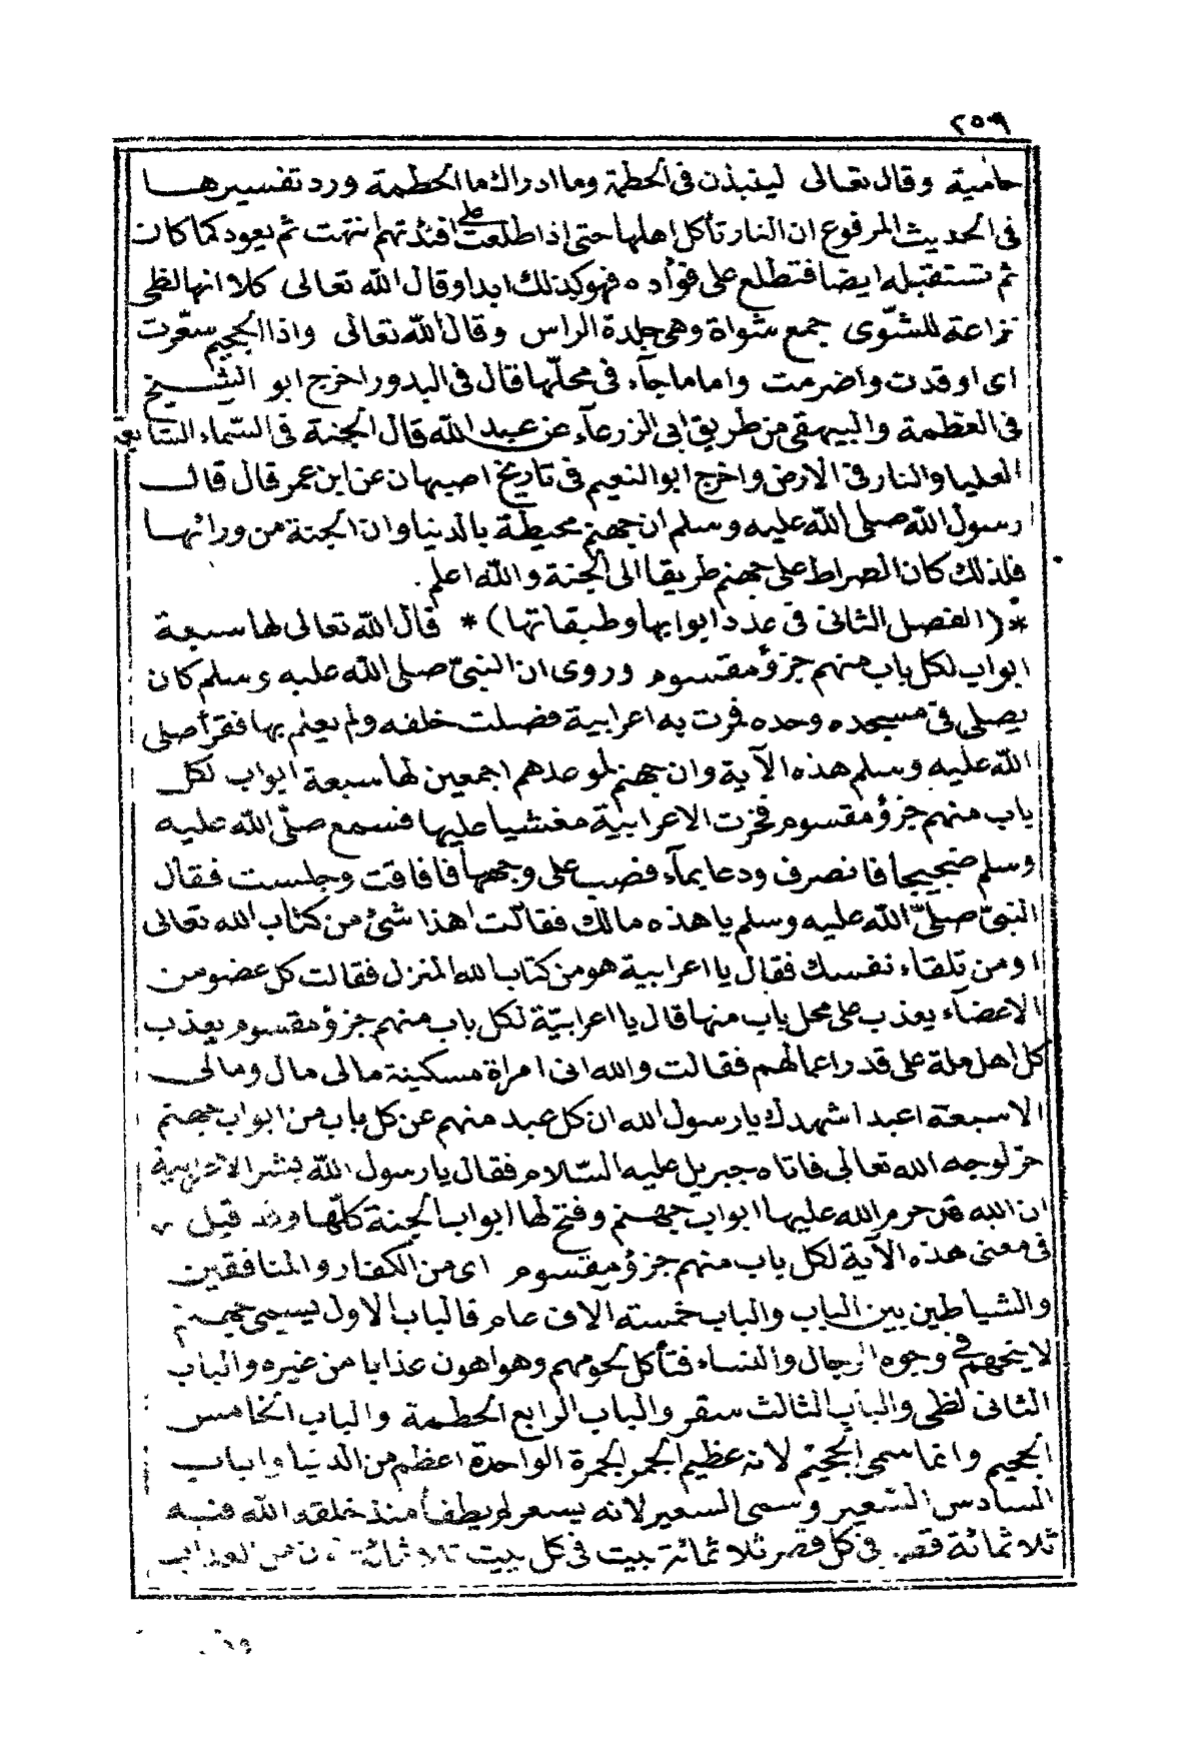 ٢٥٩
حامية وقال تعالى لينبذن فى الحطمة وما ادراك ما الحطمة ورد تفسيرها
فى الحديث المرفوع ان النار تأكل اهلها حتى اذا طلعت على افئدتهم انتهت ثم يعود كما كان
ثم تستقبله ايضا فتطلع على فؤاده فهو كذلك ابدا وقال الله تعالى كلا انها لظى
نزاعة للشوى جمع شواة وهى جلدة الراس وقال الله تعالى واذا الجحيم سعّرت
اى اوقدت واضرمت واما ما جآء فى محلّها قال فى البدور اخرج ابو الشيخ
فى العظمة والبيهقى من طريق ابى الزرعآء عن عبد الله قال الجنة فى السّماء السّابعة
العليا والنار فى الارض واخرج ابو النعيم فى تاريخ اصبهان عن ابن عمر قال قال
رسول الله صلى الله عليه وسلم ان جهنم محيطة بالدنيا وان الجنة من ورائها
فلذلك كان الصراط على جهنم طريقا الى الجنة والله اعلم .
*( الفصل الثانى فى عدد ابوابها وطبقاتها) * قال الله تعالى لها سبعة
ابواب لكل باب منهم جزؤ مقسوم وروى ان النبىّ صلى الله عليه وسلم كان
يصلى فى مسجده وحده فمرت به اعرابية فصلت خلفه ولم يعلم بها فقرأ صلى
الله عليه وسلم هذه الآية وان جهنم لموعدهم اجمعين لها سبعة ابواب لكل
باب منهم جزؤ مقسوم فخرت الاعرابية مغشيا عليها فسمع صلّى الله عليه
وسلم ضجيجا فانصرف ودعا بمآء فصب على وجهها فافاقت وجلست فقال
النبىّ صلىّ الله عليه وسلم يا هذه مالك فقالت اهذا شئ من كتاب الله تعالى
او من تلقاء نفسك فقال يا اعرابية هو من كتاب الله المنزل فقالت كل عضو من
الاعضآء يعذب على محل باب منها قال يا اعرابيّة لكل باب منهم جزؤ مقسوم يعذب
كل اهل ملة على قدر اعمالهم فقالت والله انى امراة مسكينة مالى مال ومالى
الا سبعة اعبد اشهدك يا رسول الله ان كل عبد منهم عن كل باب من ابواب جهنم
حرّ لوجه الله تعالى فاتاه جبريل عليه السّلام فقال يا رسول الله بشر الاعرابية
ان الله قد حرم الله عليها ابواب جهنم وفتح لها ابواب الجنة كلّها وقد قيل
فى معنى هذه الآية لكل باب منهم جزؤ مقسوم اى من الكفار والمنافقين
والشياطين بين الباب والباب خمسته آلاف عام فالباب الاول يسمى جهنم
لا يتجهم فى وجوه الرجال والنساء فتأكل لحومهم وهو اهون عذابا من غيره والباب
الثانى لظى والباب الثالث سقر والباب الرابع الحطمة والباب الخامس
الجحيم وانما سمى الجحيم لانه عظيم الجمر الجمرة الواحدة اعظم من الدنيا والباب
السادس السّعير وسمى السعير لانه يسعر لم يطفأ منذ خلقه الله فيه
ثلاثمائة قصر فى كل قصر ثلاثمائة بيت فى كل بيت ثلاثمائة من العذاب